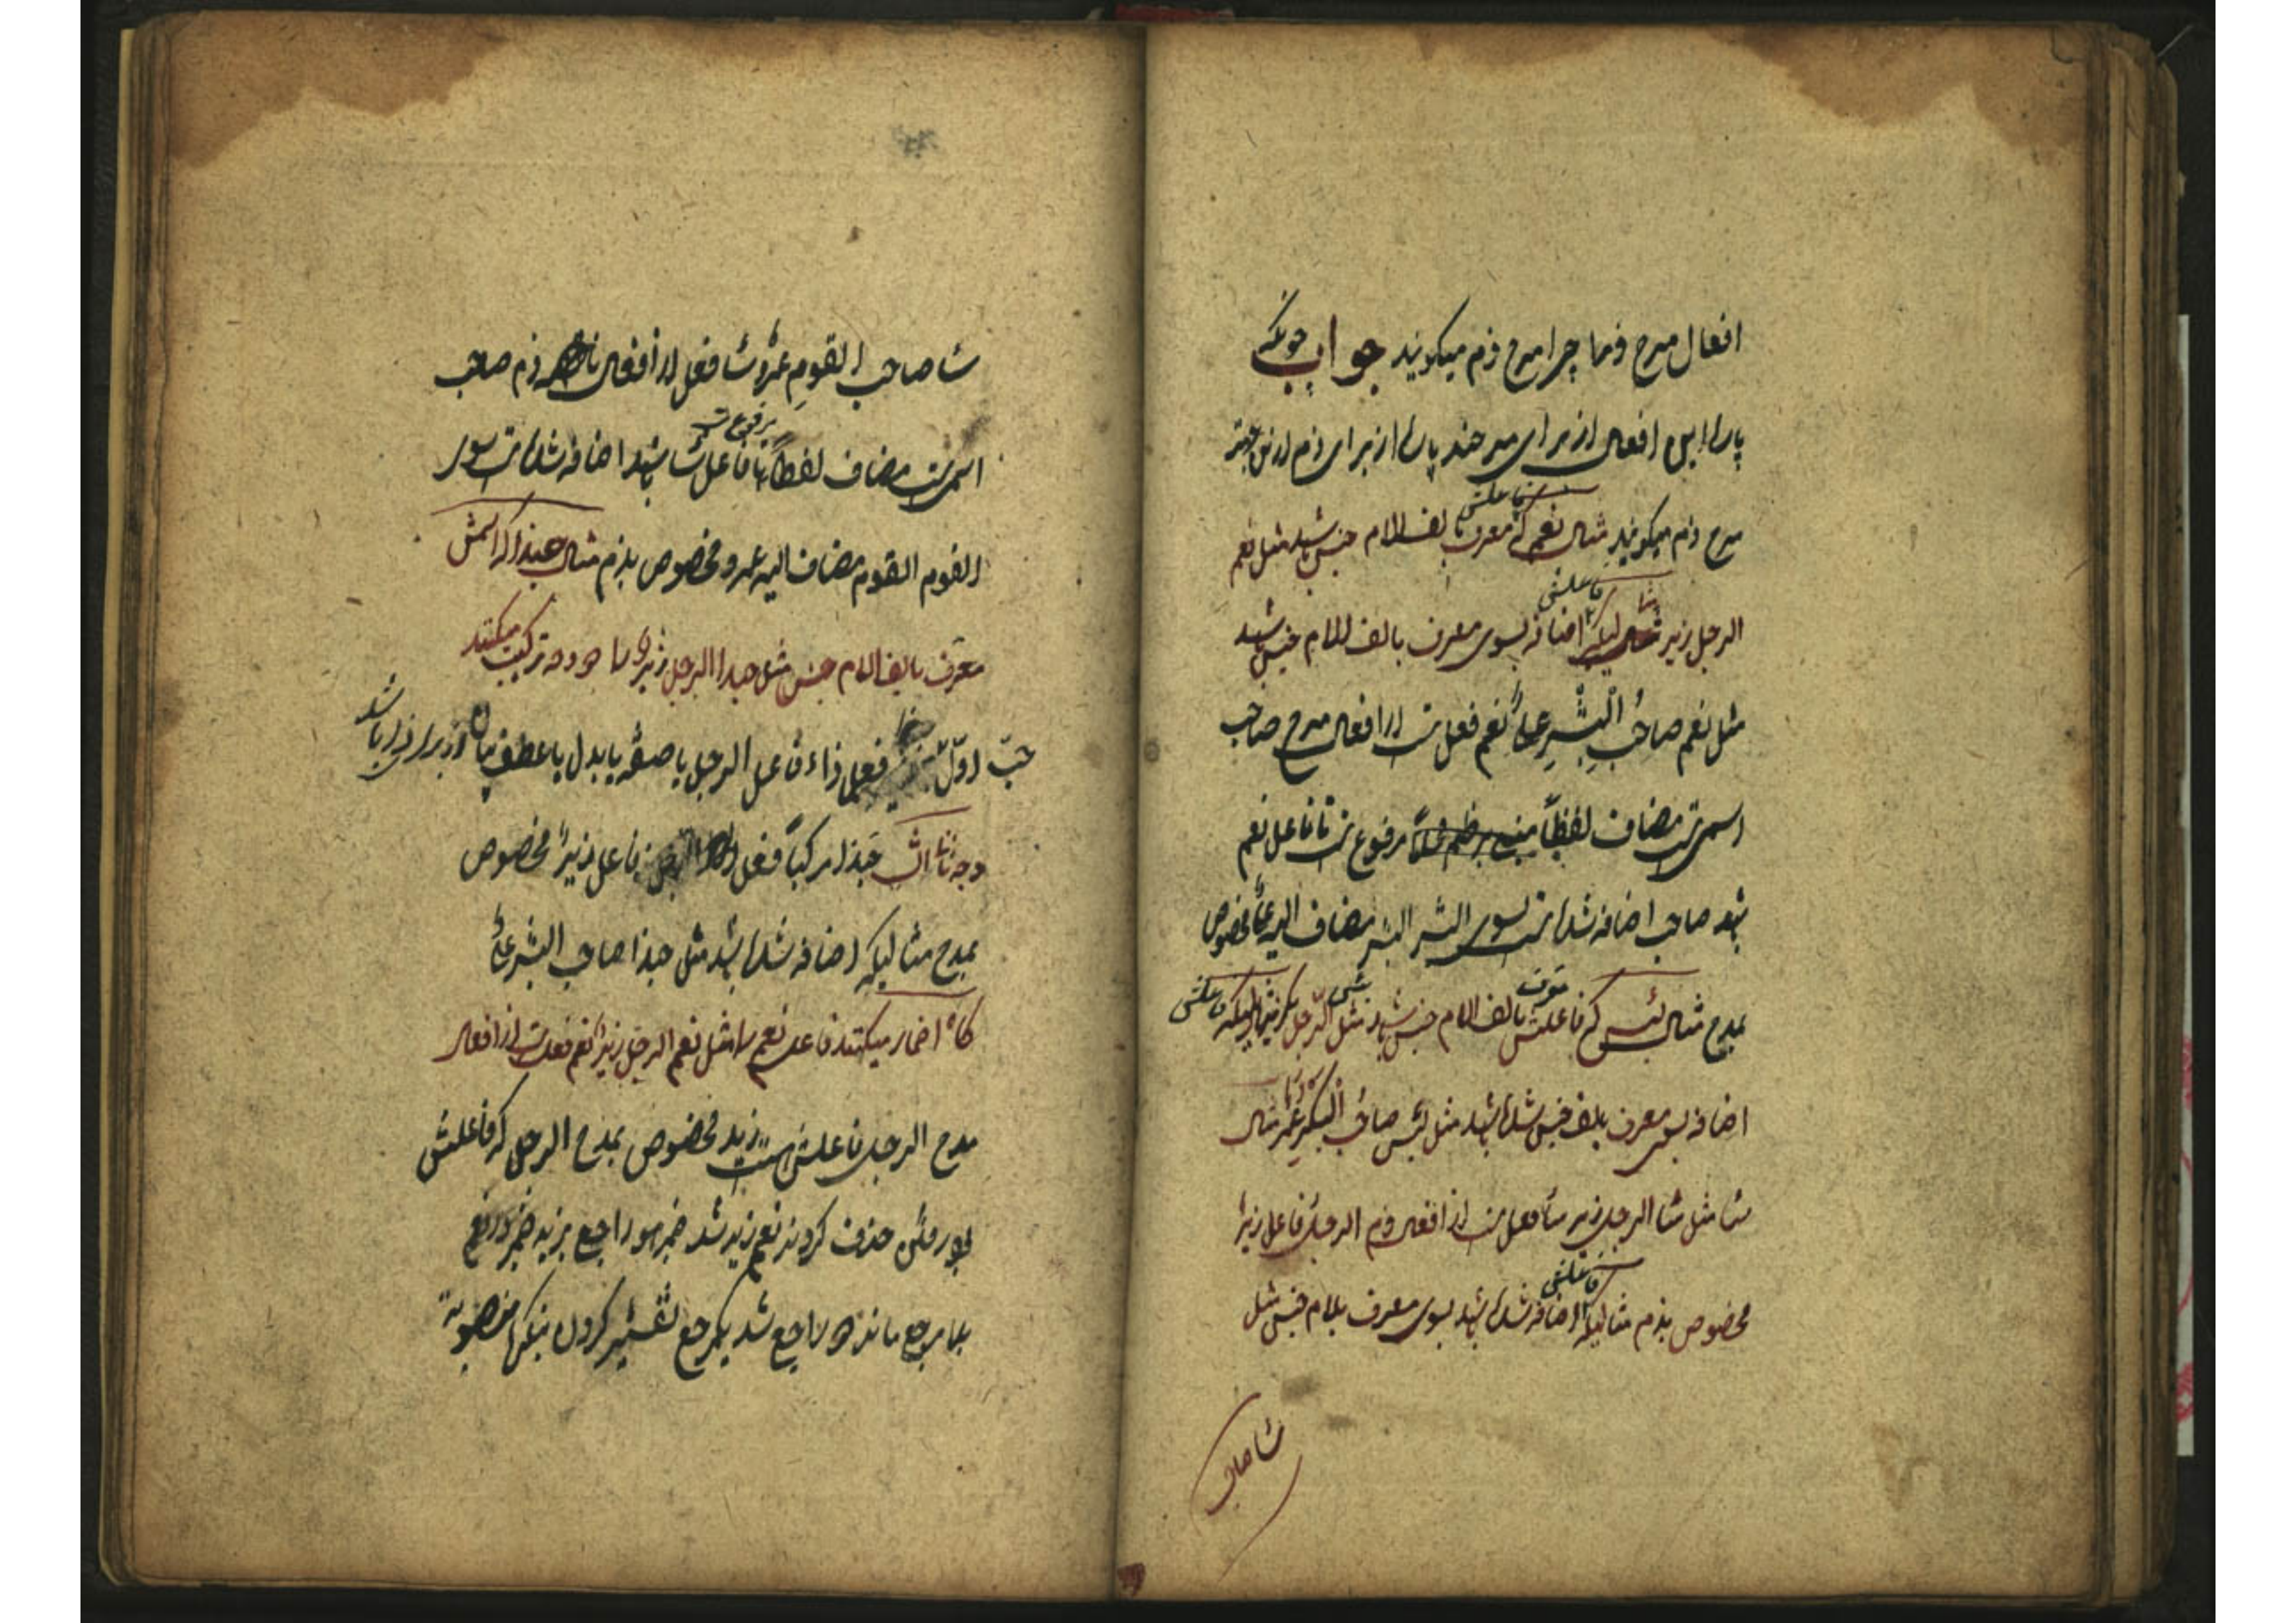 افعال مدح وذما چرا مدح وذم میکویند جواب چونکه
پارا این افعال از برای مدحند پارا از برای ذم ازین جهت
مدح وذم میکویند مثال نعم که فاعلش معرف بالف اللام جنس باشد مثل نعم
الرجل زید مثالیکه فاعلش اضافه بسوی معرف بالف اللام جنس باشد
مثل نعم صاحب البشر علی نعم فعل است از افعال مدح صاحب
اسمی است مضاف لفظاً مرفوع است تا فاعل نعم
باشد صاحب اضافه شده است بسوی البشر البشر مضاف الیه علی مخصوص
بمدح مثال بئس که فاعلش معرف بالف اللام جنس باشد مثل بئس الرجل بکر مثالیکه فاعلش
اضافه بسوی معرف بلف جنس شده باشد مثل بئس صاحب البکر عمر مثال
ساء مثل ساء الرجل زید ساء فعل است از افعال ذم الرجل فاعل زید
مخصوص بذم مثالیکه فاعلش اضافه شده باشد بسوی معرف بلام جنس مثل
ساء صاحب
ساء صاحب القوم عمرو ساء فعل از افعال ذم صاحب
اسمی است مضاف لفظاً مرفوع است تا فاعل ساء باشد اضافه شده است بسوی
القوم القوم مضاف الیه عمرو مخصوص بذم مثال حبذا که اسمش
معرف بالف اللام جنس مثل حبذا الرجل زید را دو وجه ترکیب میکنند
حب اول فعل ذاء فاعل الرجل یا صفه یا بدل یا عطف بیان از برای ذا باشد
وجه ثانی حبذا مرکباً فعل الرجل فاعل زید مخصوص
بمدح مثالیکه اضافه شده باشد مثل حبذا صاحب البشر علی
کاه اضمار میکنند فاعل نعم را مثل نعم الرجل زید نعم فعل است از افعال
مدح الرجل فاعلش است زید مخصوص بمدح الرجل که فاعلش
بود حذف کردند نعم زید شد ضمیر هو راجع بزید ضمیر در نعم
بلا مرجع ماند راجع شد بمرجع تفسیر کردن بنکره منصوبه